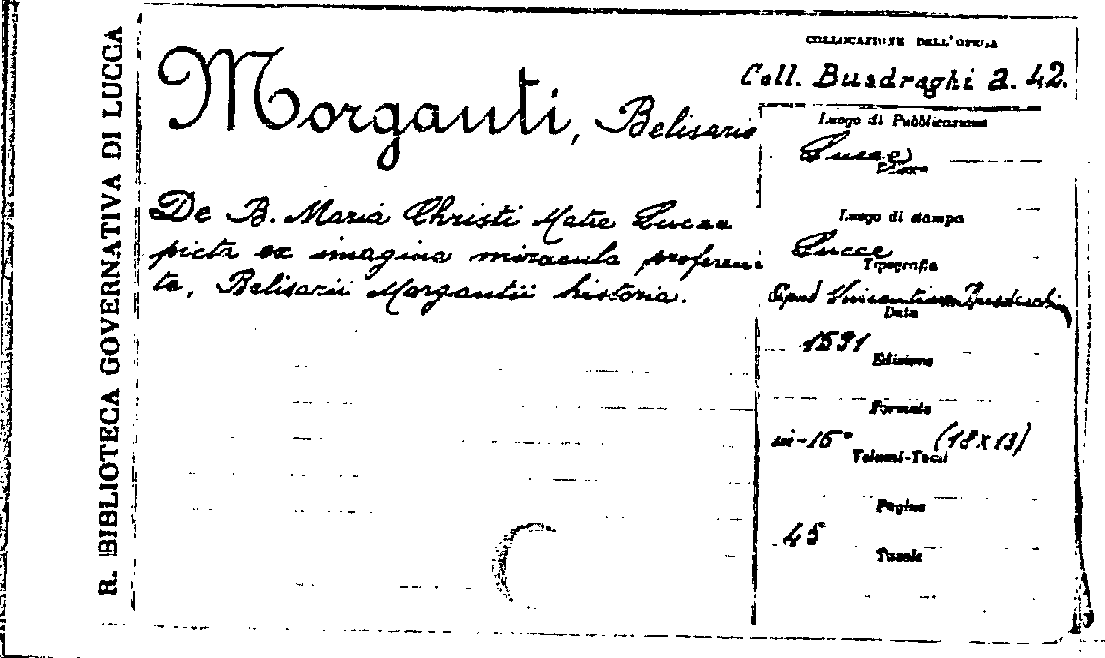 R. BIBLIOTECA GOVERNATIVA DI LUCCA
COLLOCAZIONE DELL'OPERA
Coll. Busdraghi a. 42.
Morganti, Belisario
De B. Maria Christi Matre Lucae
picta ex imagina miracula proferen
te, Belisarii Morgantii historia.
Luogo di Pubblicazione
Lucca
Luogo di stampa
Lucca
Tipografia
Apud Vincentium Busdraghi
Data
1591
Edizione
Formato
in-16° (18x13)
Volumi-Tomi
Pagine
45
Tavole